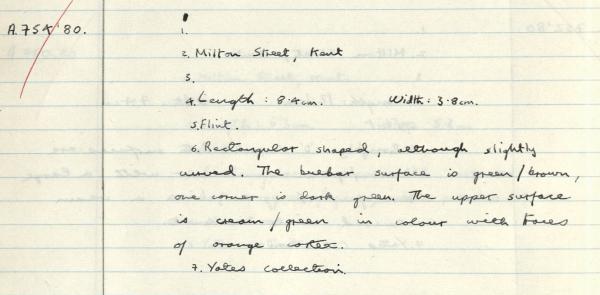 A.754'80.
1.
2. Milton Street, Kent
3.
4. Length : 8.4cm. Width : 3.8cm.
5. Flint.
6. Rectangular shaped, although slightly
curved. The bulbar surface is green/brown,
one corner is dark green. The upper surface
is cream/green in colour with traces
of orange cortex.
7. Yates collection.